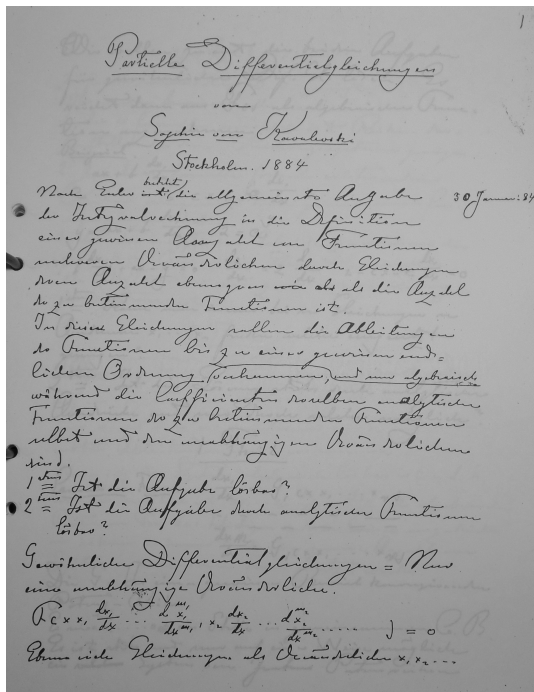 1
Partielle Differentialgleichungen
von
Sophie von Kowalevski
Stockholm. 1884
30 Januar. 84
Nach Euler besteht die allgemeinste Aufgabe
der Integralrechnung in der Definition
einer gewissen Anzahl von Functionen
mehreren Veränderlichen durch Gleichungen
deren Anzahl ebensogross als die Anzahl
der zu bestimmenden Functionen ist.
In diesen Gleichungen sollen die Ableitungen
der Functionen bis zu einer gewissen end=
lichen Ordnung vorkommen, und nur algebraisch
während die Coefficienten derselben analytische
Functionen der zu bestimmenden Functionen
selbst und den unabhängigen Veränderlichen
sind.
1tens Ist die Aufgabe lösbar?
2tens Ist die Aufgabe durch analytische Functionen
lösbar?
Gewöhnliche Differentialgleichungen = Nur
eine unabhängige Veränderliche.
F(x x₁ dx₁/dx ... d^m₁x₁/dx^m₁, x₂ dx₂/dx ... d^m₂x₂/dx^m₂ ..... ) = 0
Ebenso viele Gleichungen als Veränderliche x₁ x₂ ...